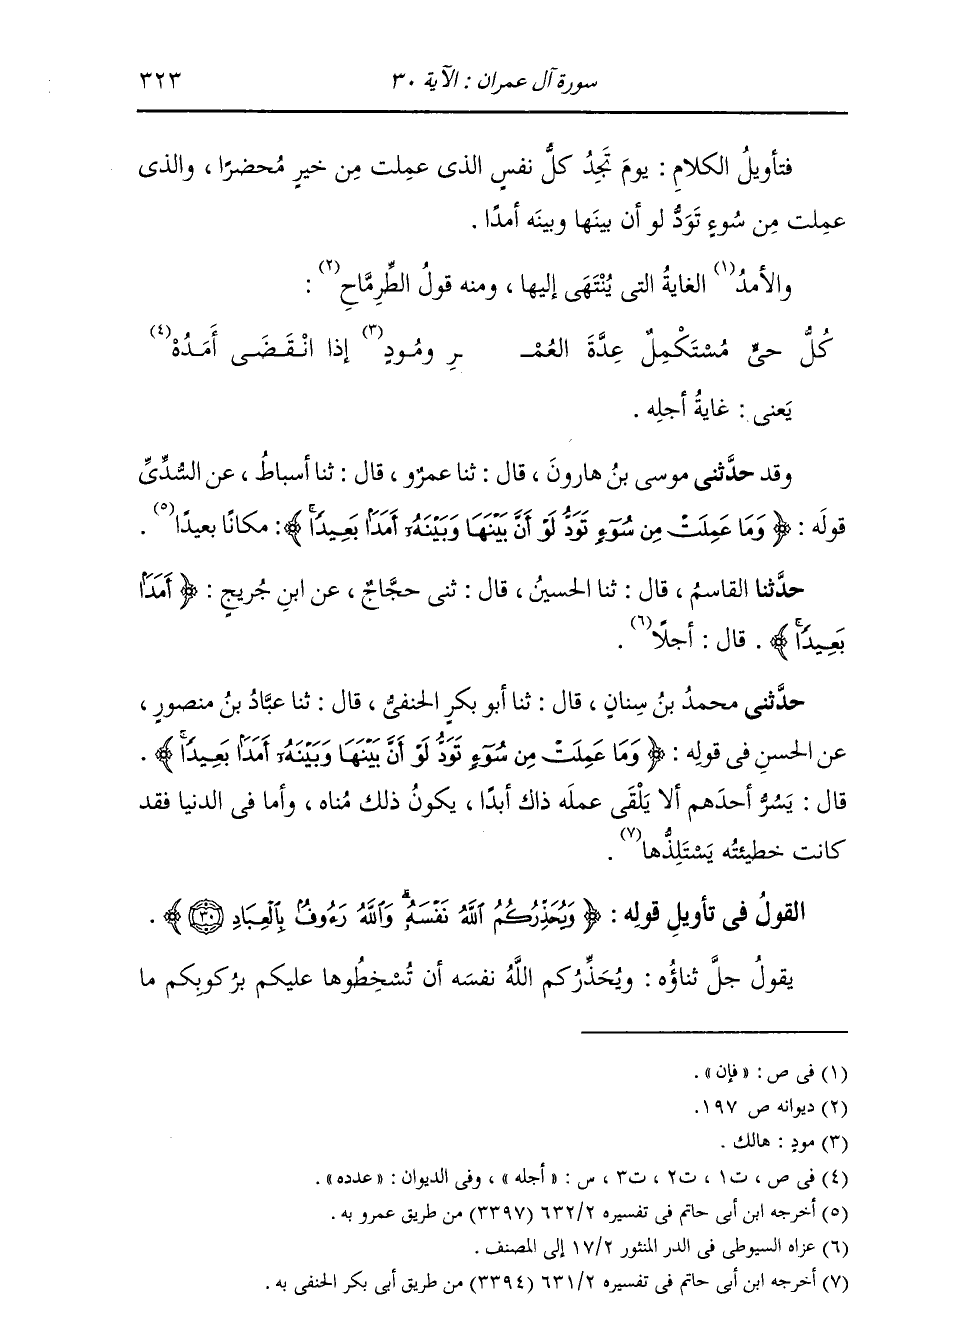 سورة آل عمران : الآية ٣٠ ٣٢٣
فتأويلُ الكلامِ : يومَ تَجِدُ كلُّ نفسٍ الذى عمِلت مِن خيرٍ مُحضرًا ، والذى
عمِلت مِن سُوءٍ تَوَدُّ لو أن بينَها وبينَه أمدًا .
والأمدُ(١) الغايةُ التى يُنْتَهَى إليها ، ومنه قولُ الطِّرِمَّاحِ(٢) :
كُلُّ حىٍّ مُسْتَكْمِلٌ عِدَّةَ العُمْـ ـرِ ومُودٍ(٣) إذا انْقَضَى أَمَدُهْ(٤)
يَعنى : غايةُ أجلِه .
وقد حدَّثنى موسى بنُ هارونَ ، قال : ثنا عمرٌو ، قال : ثنا أسباطُ ، عن السُّدِّىِّ
قولَه : ﴿ وَمَا عَمِلَتْ مِن سُوٓءٍ تَوَدُّ لَوْ أَنَّ بَيْنَهَا وَبَيْنَهُۥٓ أَمَدَۢا بَعِيدًاۗ ﴾ : مكانًا بعيدًا(٥) .
حدَّثنا القاسمُ ، قال : ثنا الحسينُ ، قال : ثنى حجَّاجٌ ، عن ابنِ جُريجٍ : ﴿ أَمَدَۢا
بَعِيدًاۗ ﴾ . قال : أجلًا(٦) .
حدَّثنى محمدُ بنُ سِنانٍ ، قال : ثنا أبو بكرٍ الحنفىُّ ، قال : ثنا عبَّادُ بنُ منصورٍ ،
عن الحسنِ فى قولِه : ﴿ وَمَا عَمِلَتْ مِن سُوٓءٍ تَوَدُّ لَوْ أَنَّ بَيْنَهَا وَبَيْنَهُۥٓ أَمَدَۢا بَعِيدًاۗ ﴾ .
قال : يَسُرُّ أحدَهم ألا يَلْقَى عملَه ذاك أبدًا ، يكونُ ذلك مُناه ، وأما فى الدنيا فقد
كانت خطيئتُه يَسْتَلِذُّها(٧) .
القولُ فى تأويلِ قولِه : ﴿ وَيُحَذِّرُكُمُ ٱللَّهُ نَفْسَهُۥۗ وَٱللَّهُ رَءُوفُۢ بِٱلْعِبَادِ ﴿٣٠﴾ ﴾ .
يقولُ جلَّ ثناؤُه : ويُحَذِّرُكم اللَّهُ نفسَه أن تُسْخِطُوها عليكم برُكوبِكم ما
(١) فى ص : « فإن » .
(٢) ديوانه ص ١٩٧ .
(٣) مودٍ : هالك .
(٤) فى ص ، ت١ ، ت٢ ، ت٣ ، س : « أجله » ، وفى الديوان : « عدده » .
(٥) أخرجه ابن أبى حاتم فى تفسيره ٦٣٢/٢ (٣٣٩٧) من طريق عمرو به .
(٦) عزاه السيوطى فى الدر المنثور ١٧/٢ إلى المصنف .
(٧) أخرجه ابن أبى حاتم فى تفسيره ٦٣١/٢ (٣٣٩٤) من طريق أبى بكر الحنفى به .